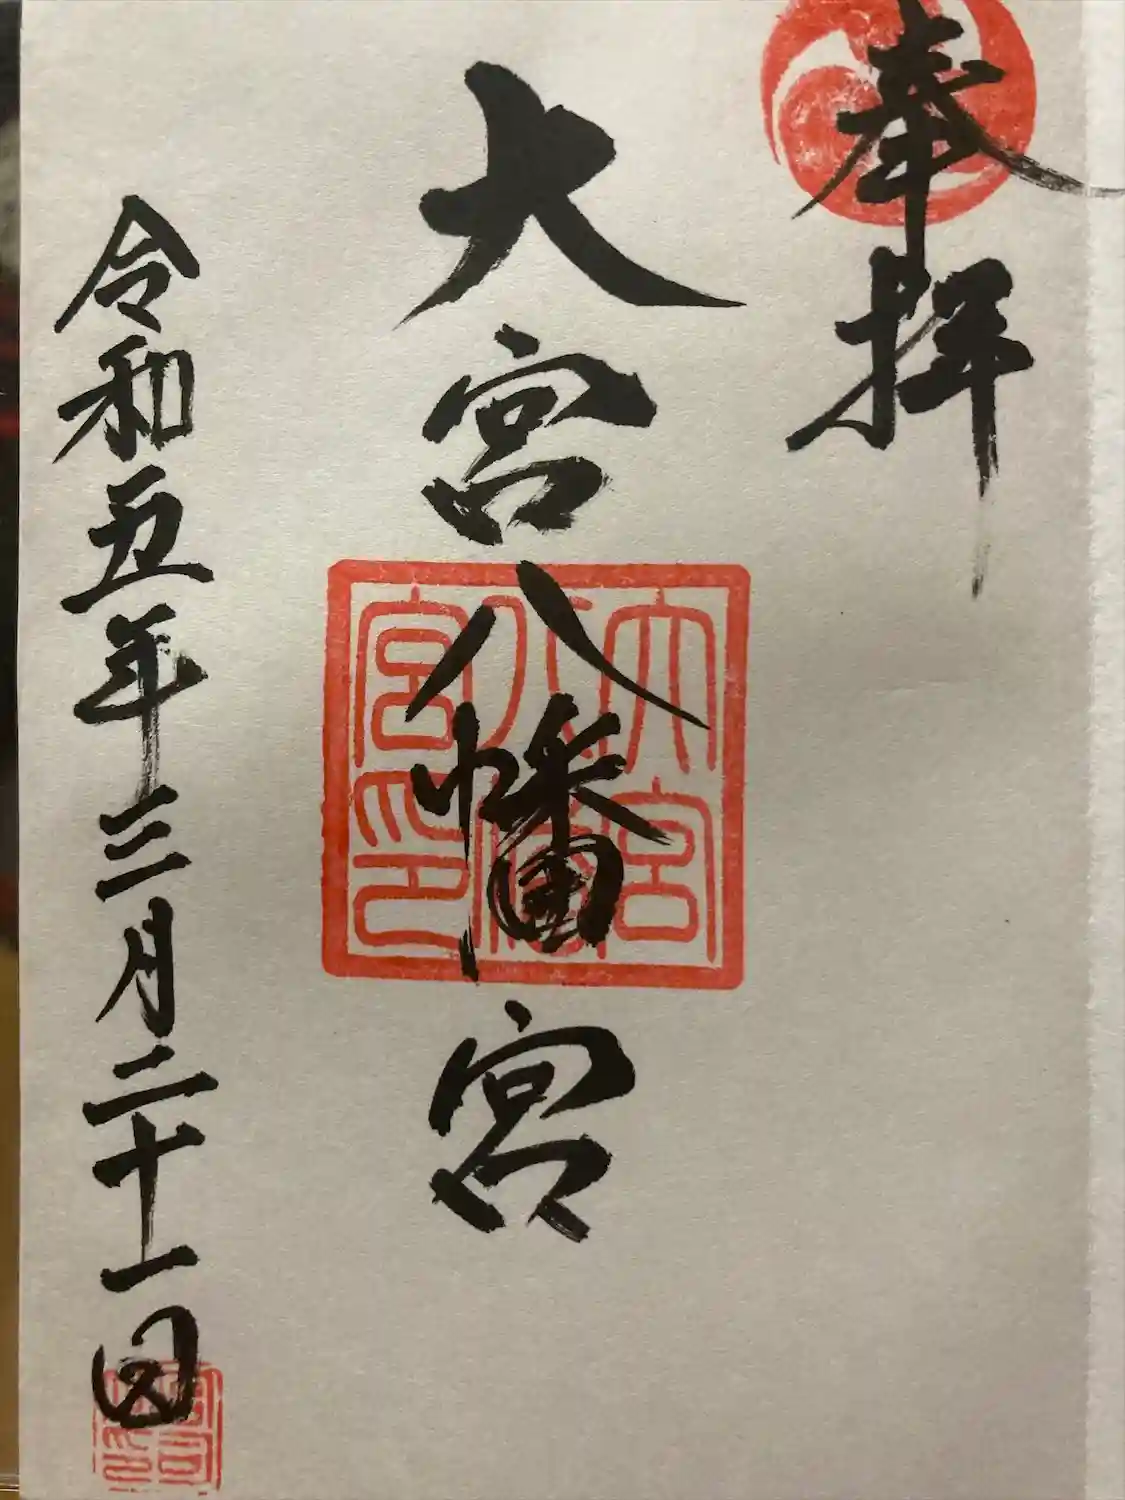 奉拝
大宮八幡宮
大宮
八幡
宮印
令和五年三月二十一日
宮司
之印